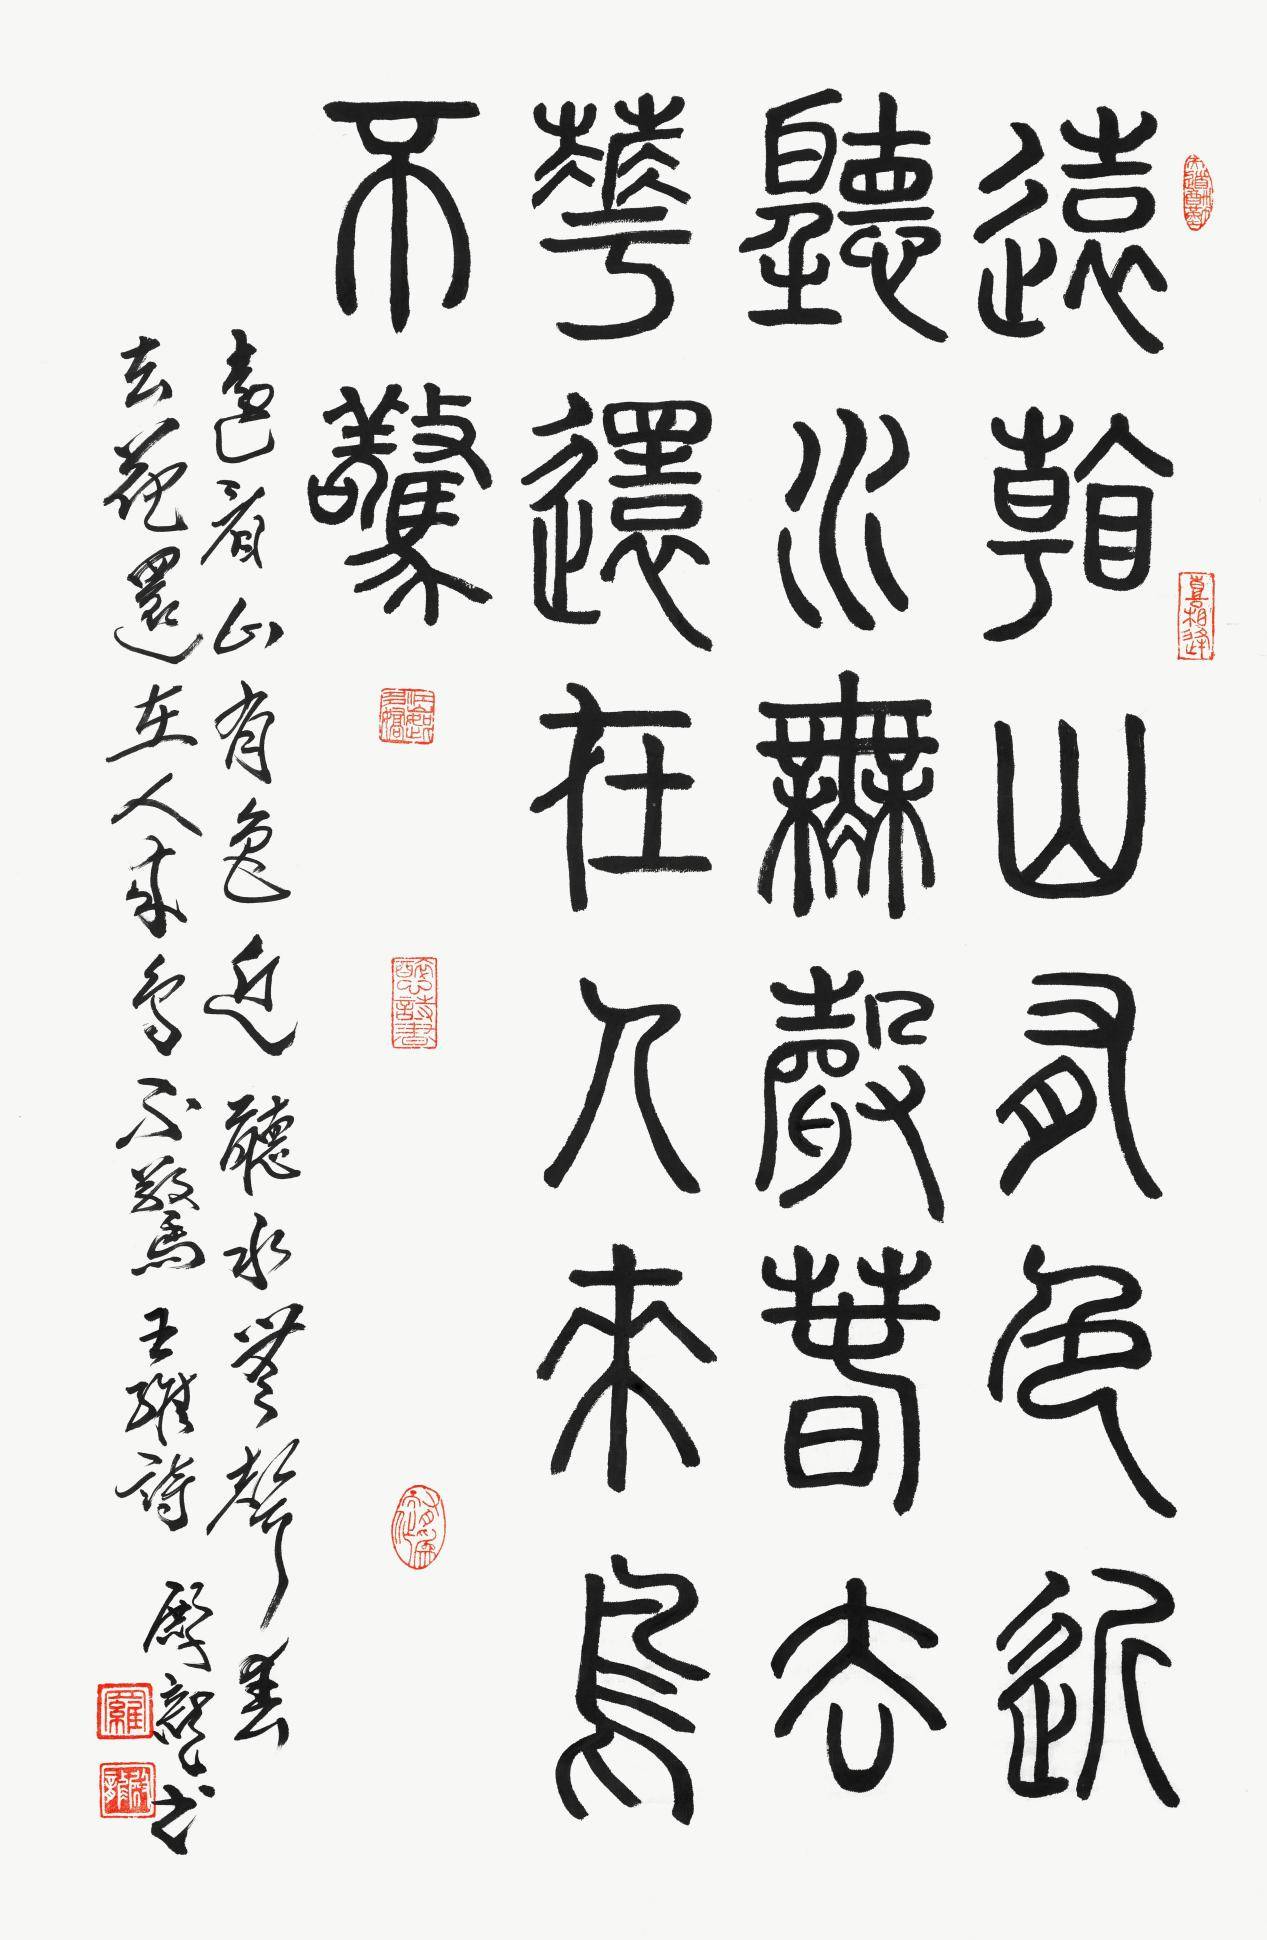 遠看山有色近
聽水無聲春去
華還在人來鳥
不驚
遠看山有色近聽水無聲春
去花還在人來鳥不驚王維詩
喜相逢
羅